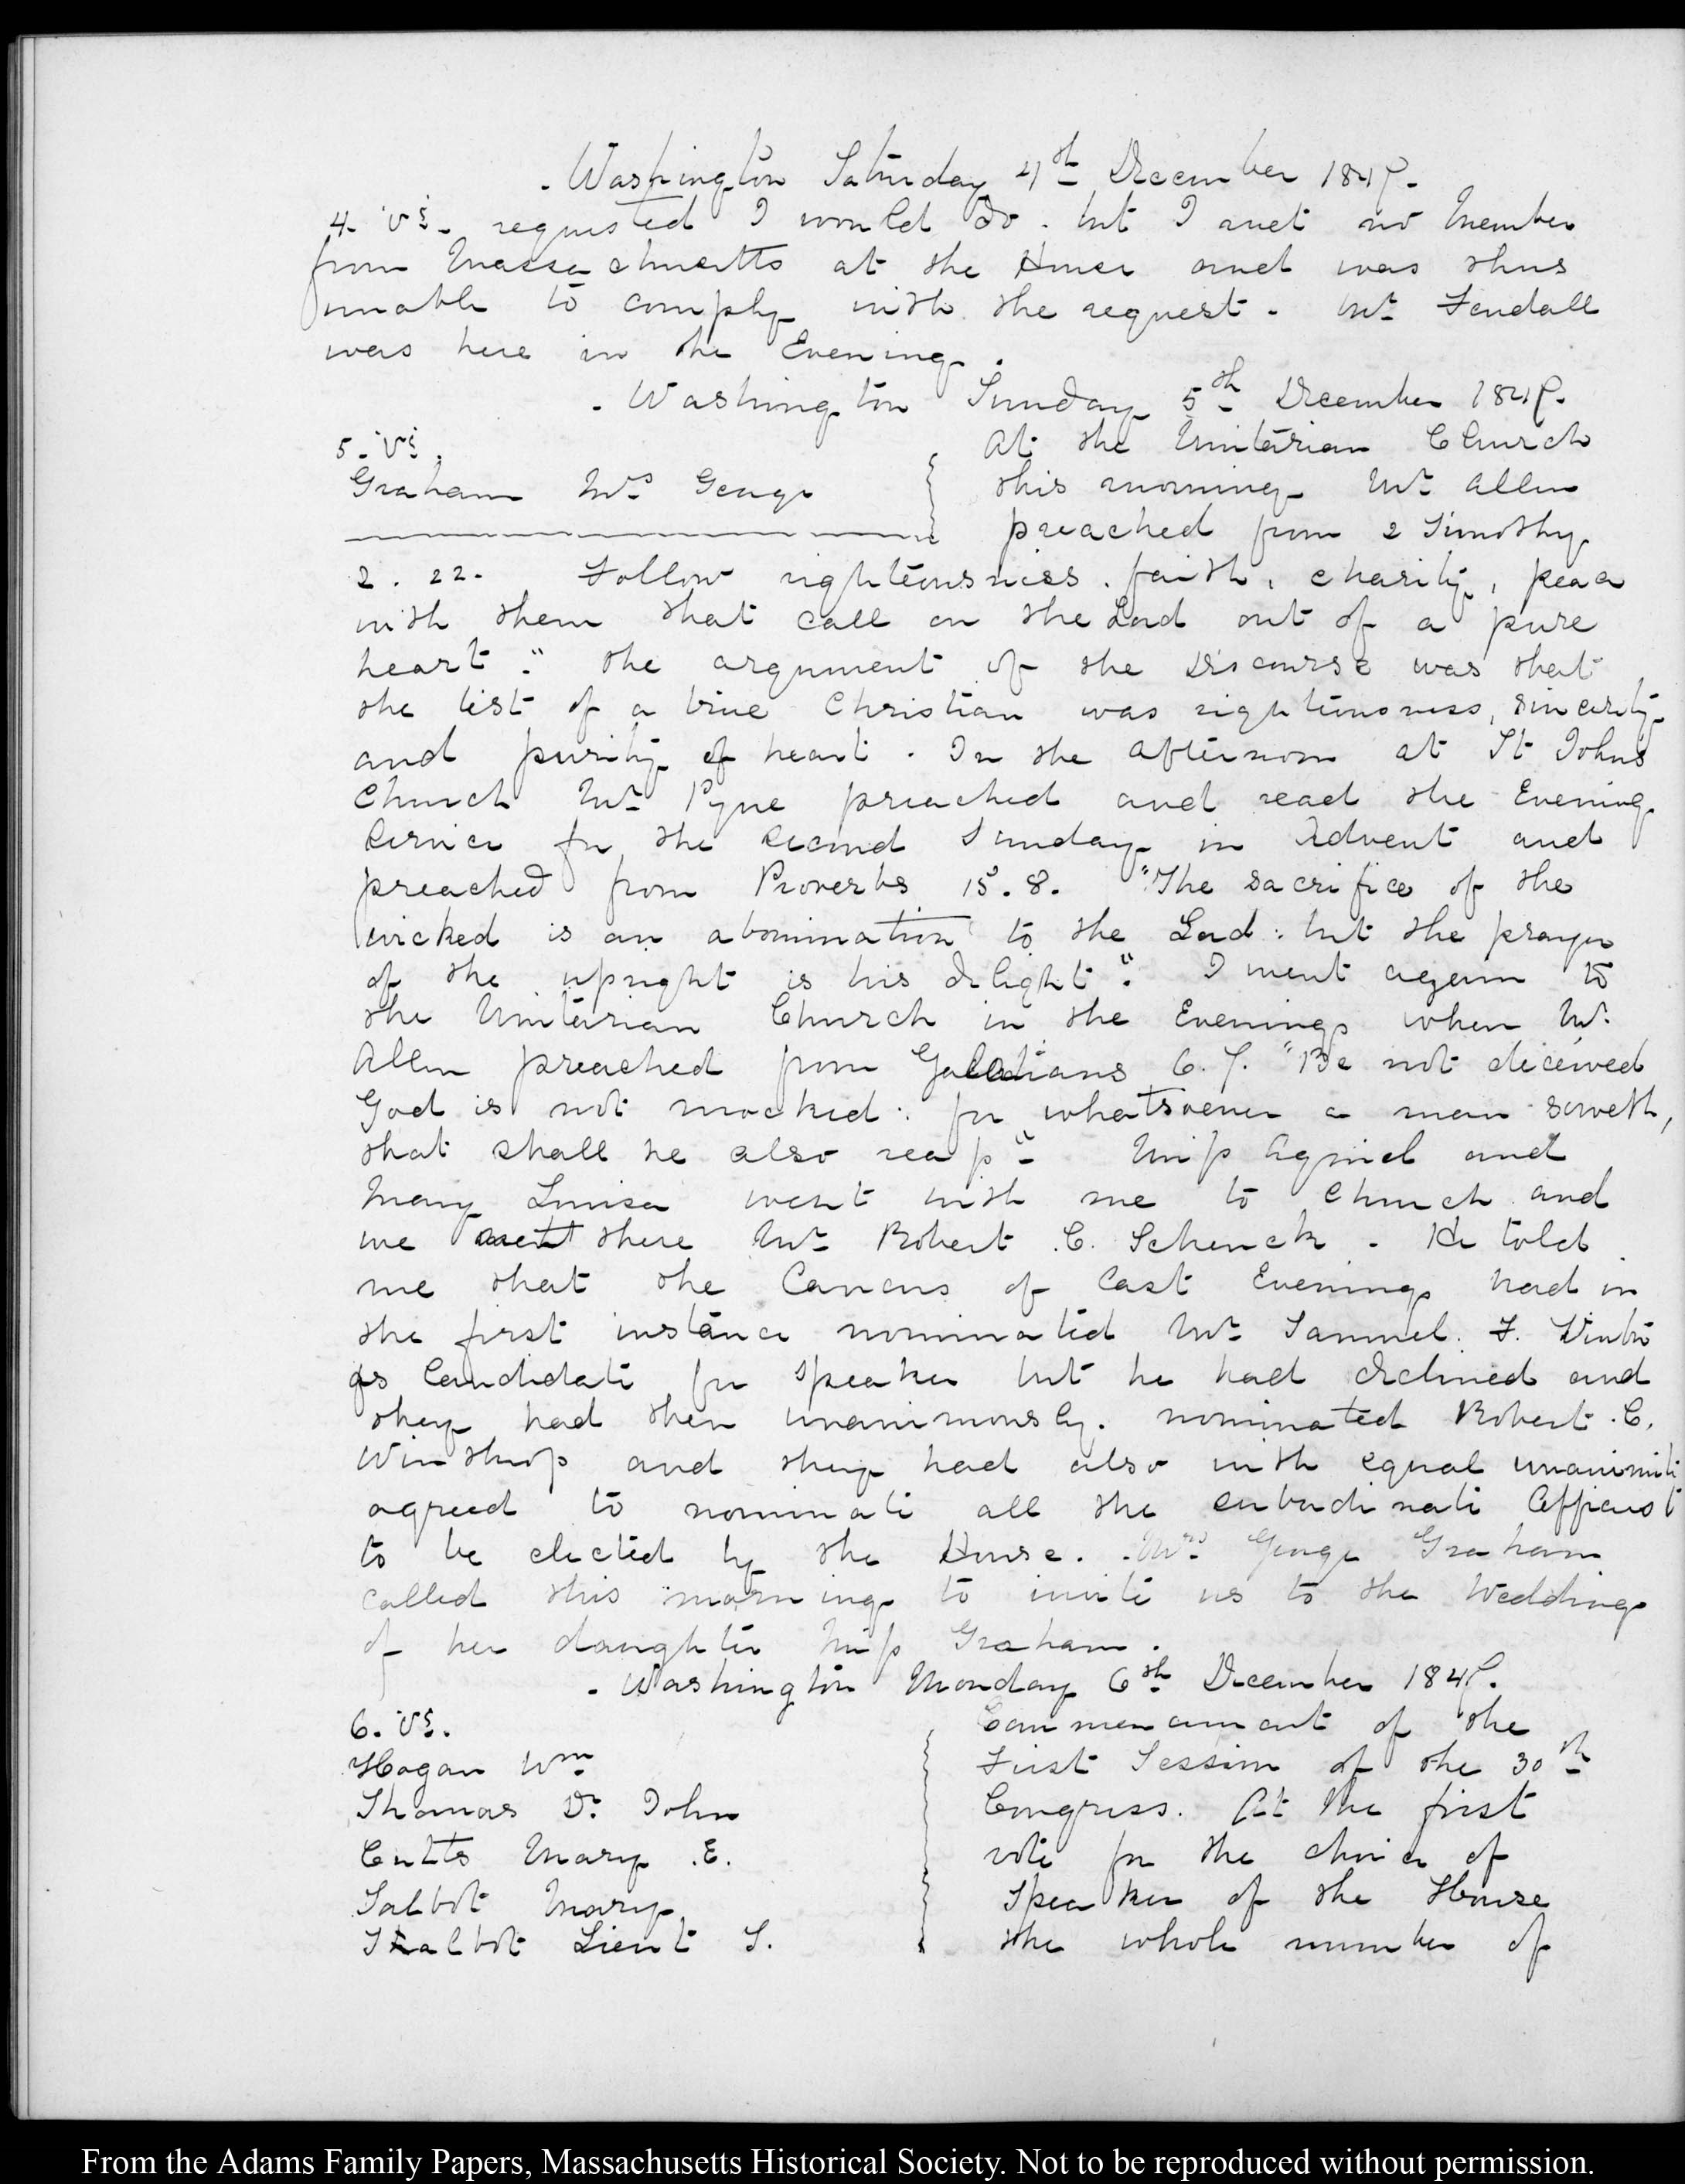 . Washington Saturday 4th December 1847.
4. VI. requested I would do. but I met no Member
from Massachusetts at the House and was thus
unable to comply with the request. Mr. Fendall
was here in the Evening.
. Washington Sunday 5th December 1847.
5. VI. At the Unitarian Church
Graham Mrs George this morning Mr. Allen
preached from 2 Timothy
2. 22. Follow righteousness, faith, charity, peace
with them that call on the Lord out of a pure
heart." the argument of the Discourse was that
the test of a true Christian was righteousness, sincerity
and purity of heart. In the afternoon at St Johns
Church Mr. Pyne preached and read the Evening
Service for the second Sunday in Advent and
preached from Proverbs 15. 8. "The sacrifice of the
wicked is an abomination to the Lord: but the prayer
of the upright is his delight". I went again to
the Unitarian Church in the Evening when Mr.
Allen preached from Galatians 6. 7. "Be not deceived
God is not mocked: for whatsoever a man soweth,
that shall he also reap" Miss and
Mary Louisa went with me to Church and
we met there Mr. Robert C. Schenck. He told
me that the Caucus of last Evening had in
the first instance nominated Mr. Samuel F. Vinton
as Candidate for Speaker but he had declined and
they had then unanimously nominated Robert C.
Winthrop and they had also with equal unanimity
agreed to nominate all the subordinate Officers
to be elected by the House. Mrs. George Graham
called this morning to invite us to the Wedding
of her daughter Miss Graham.
. Washington Monday 6th December 1847.
6. VI. Commencement of the
Hogan Wm First Session of the 30th
Thomas Dr. John Congress. At the first
Cutts Mary .E. vote for the choice of
Talbot Mary Speaker of the House
Talbot Lieut T. the whole number of
From the Adams Family Papers, Massachusetts Historical Society. Not to be reproduced without permission.